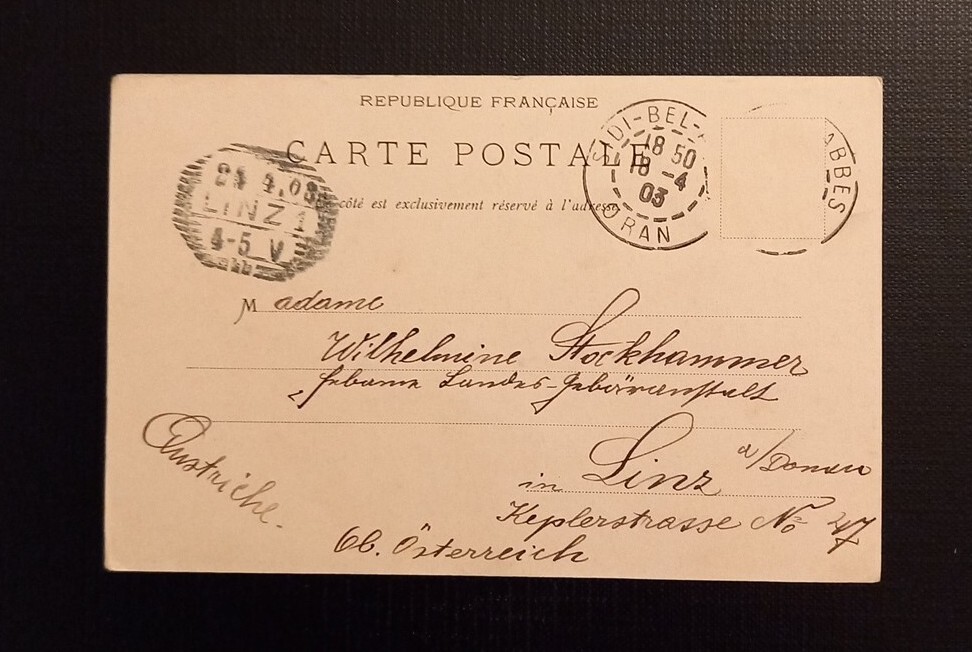 REPUBLIQUE FRANÇAISE
CARTE POSTALE
côté est exclusivement réservé à l'adresse
SIDI-BEL-ABBES
18 50
18 -4
03
ORAN
4.03
LINZ 1
4-5 V
Madame
Wilhelmine Stockhammer
Hebame Landes-Gebäranstalt
in Linz a/Donau
Keplerstrasse No 47
Ob. Österreich
Austriche.